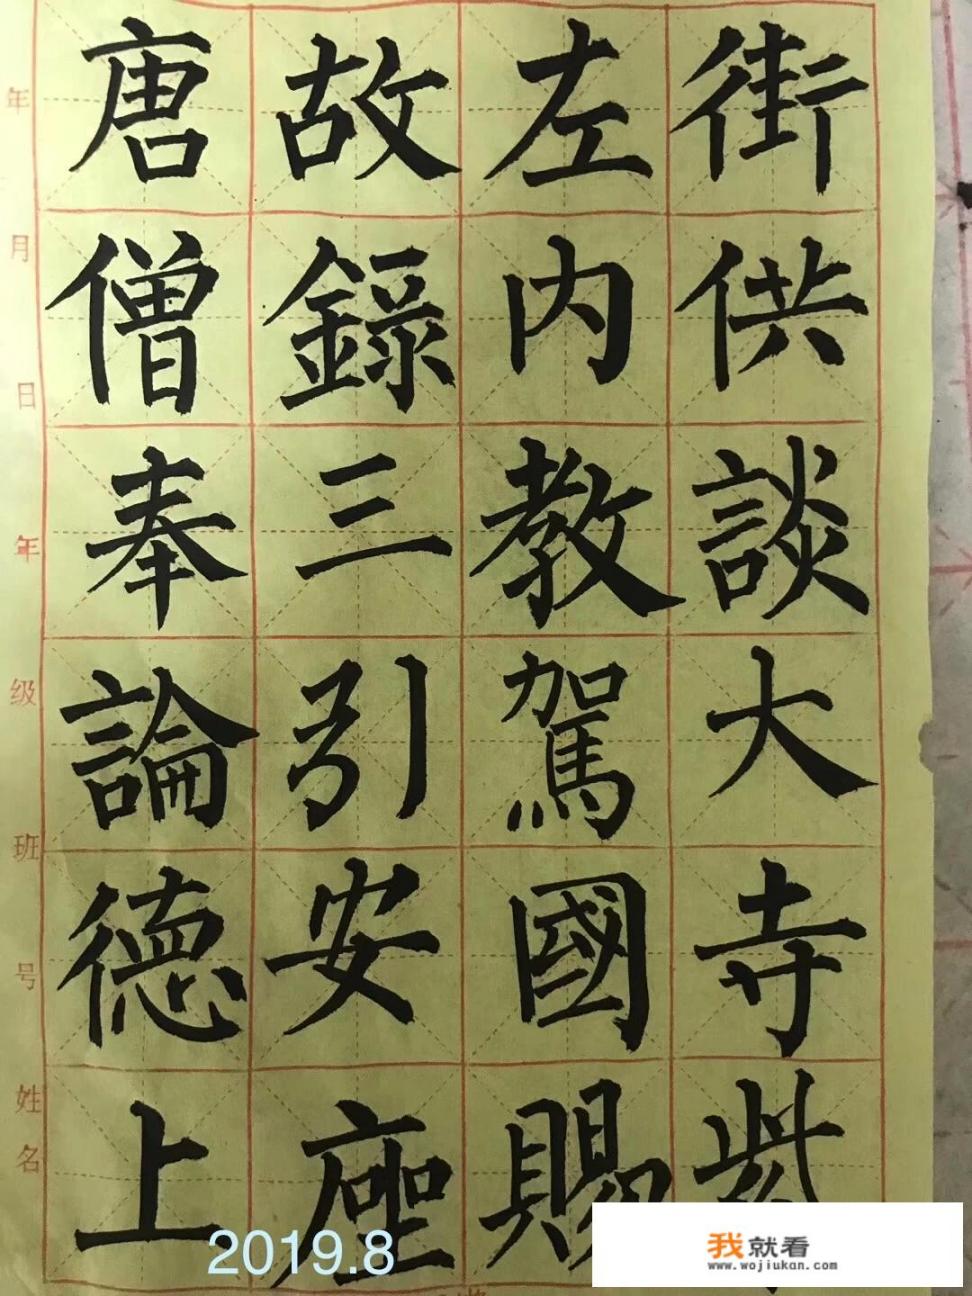 唐故左街
僧錄内供
奉三教談
論引駕大
德安國寺
上座賜紫
年 月 日 年 级 班 号 姓名
2019.8
我就看
www.wojiukan.com